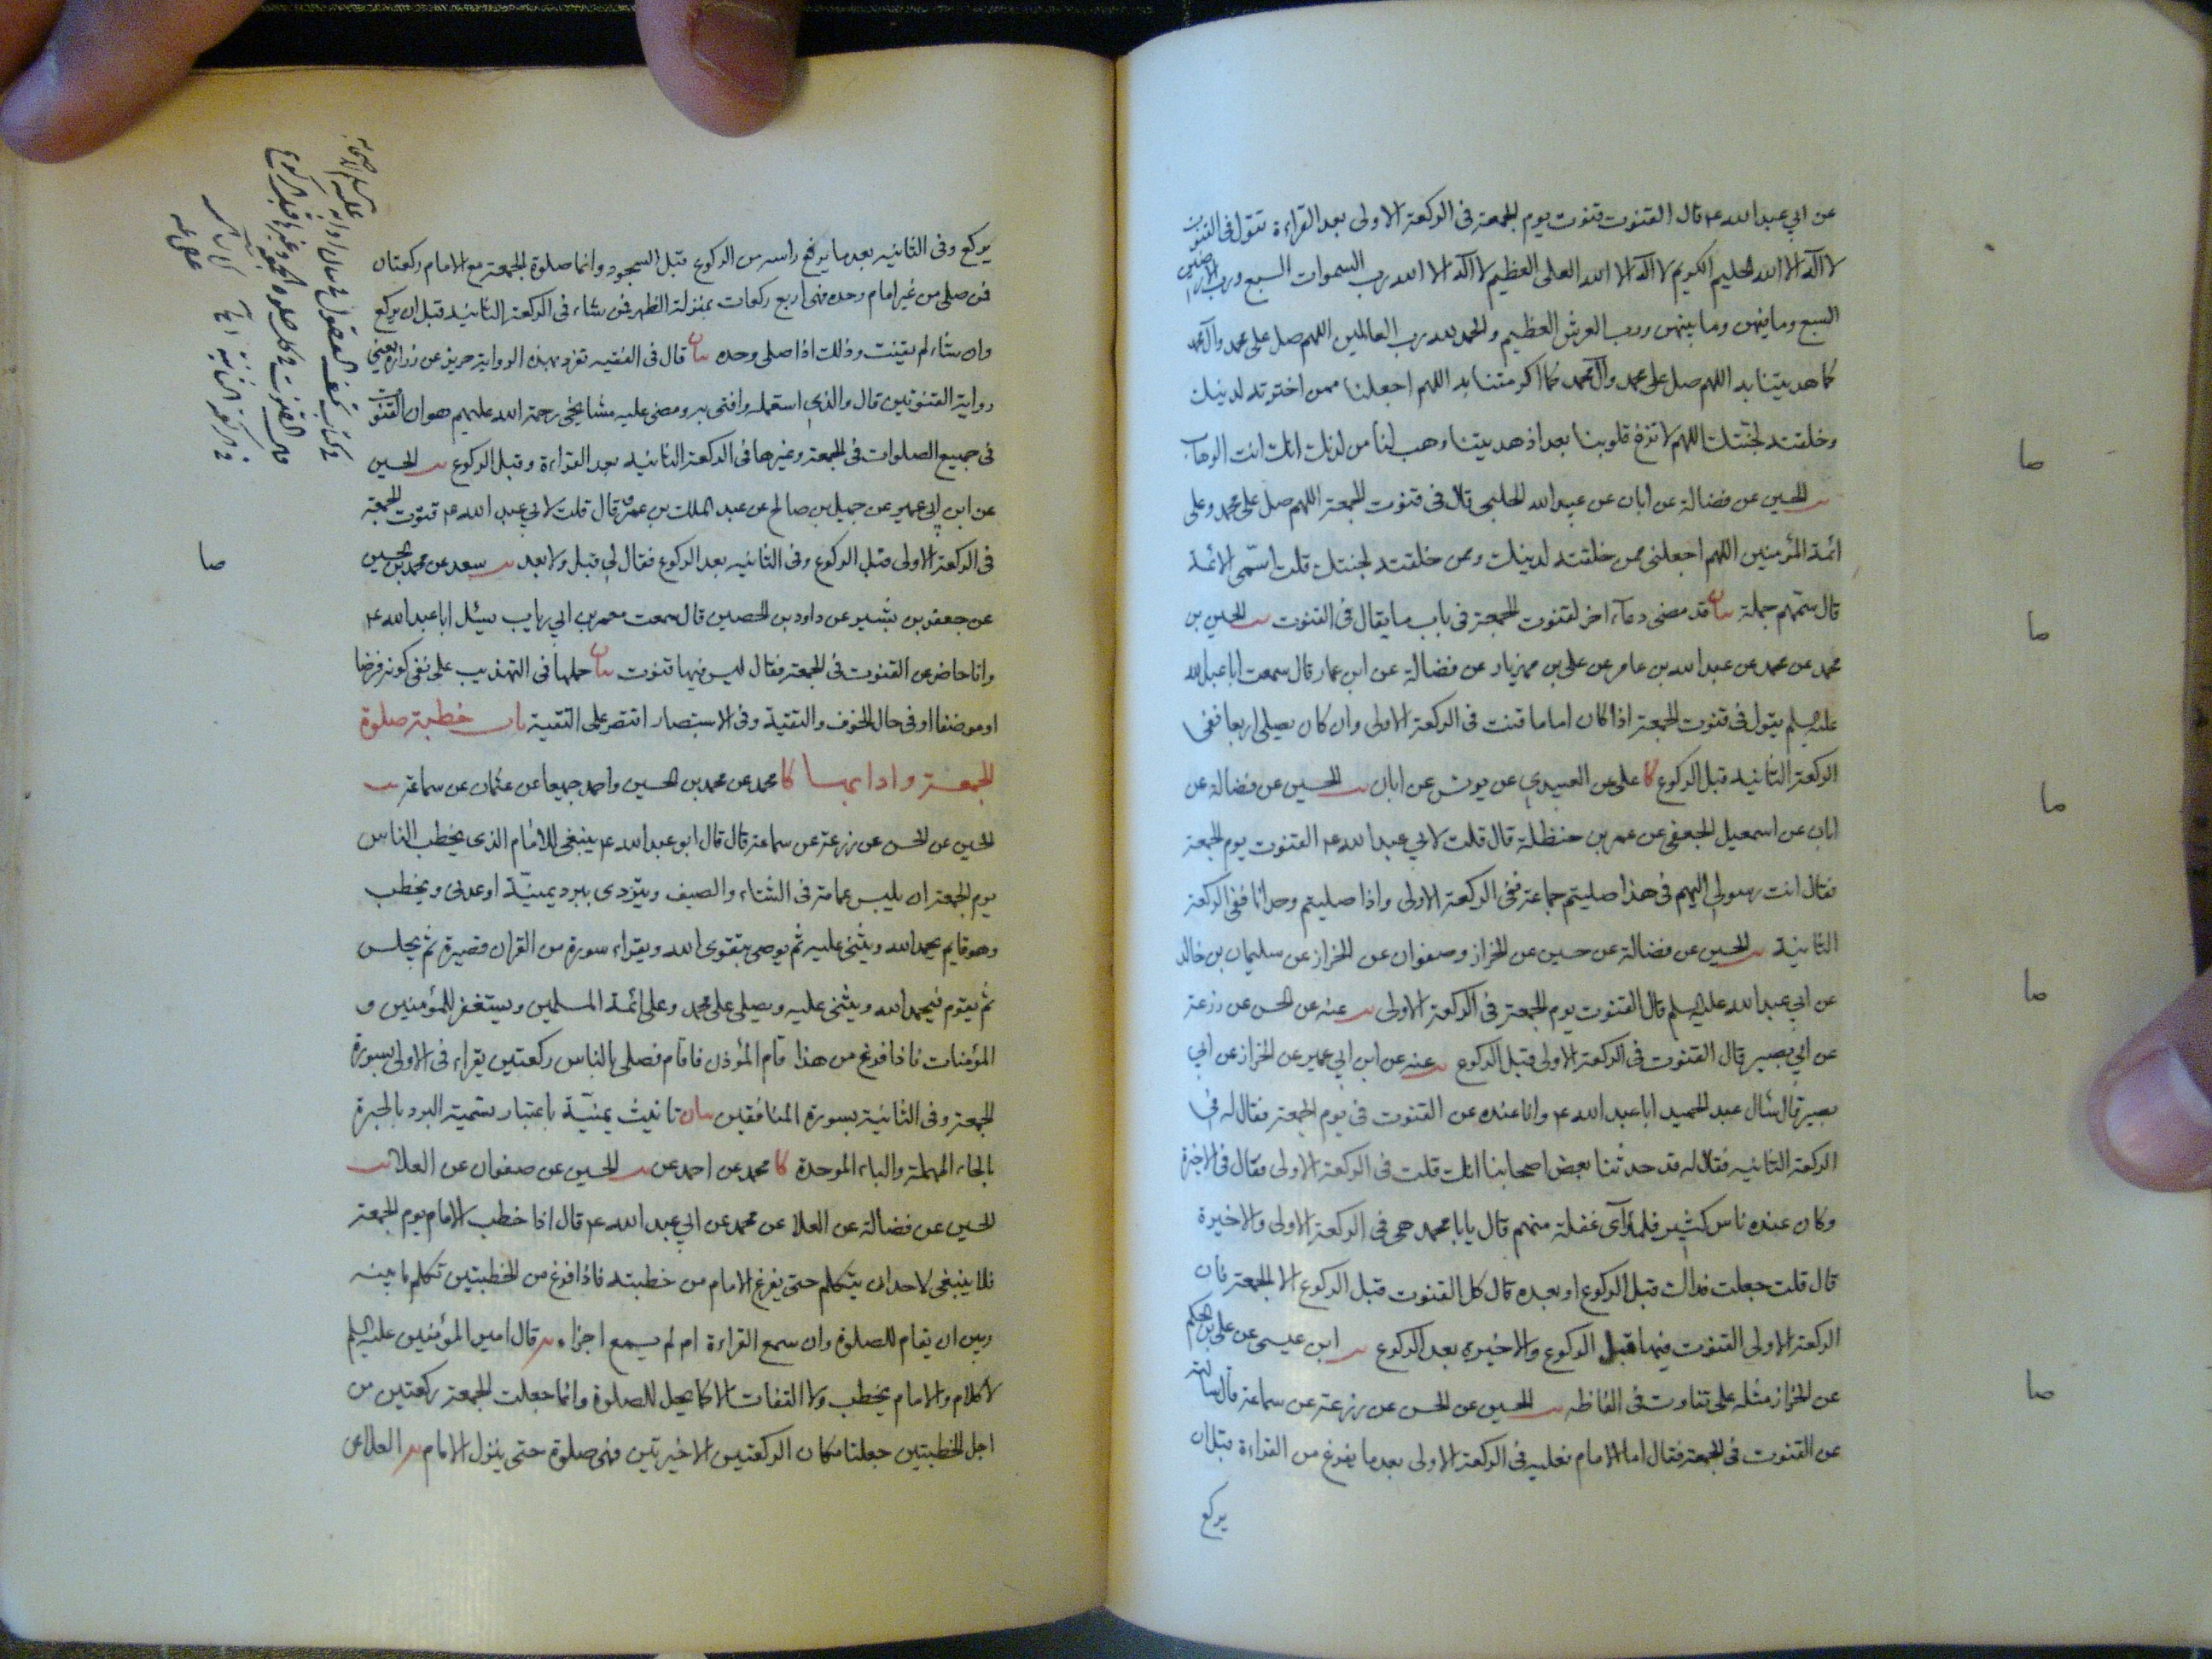 عن ابي عبد الله ع قال القنوت قنوت يوم الجمعة فى الركعة الاولى بعد القراءة تقول فى القنوت
لا اله الا الله الحليم الكريم لا اله الا الله العلى العظيم لا اله الا الله رب السموات السبع ورب الارضين
السبع وما فيهن وما بينهن ورب العرش العظيم والحمد لله رب العالمين اللهم صل على محمد وآل محمد
كما هديتنا به اللهم صل على محمد وآل محمد كما اكرمتنا به اللهم اجعلنا ممن اخترته لدينك
وخلقته لجنتك اللهم لا تزغ قلوبنا بعد اذ هديتنا وهب لنا من لدنك انك انت الوهاب
يب الحسين عن فضالة عن ابان عن عبيد الله الحلبى قال فى قنوت الجمعة اللهم صل على محمد وعلى
ائمة المؤمنين اللهم اجعلنى ممن خلقته لدينك وممن خلقته لجنتك قلت اسمى الائمة
قال سمهم جملة بيان قد مضى دعاء اخر لقنوت الجمعة فى باب ما يقال فى القنوت يب الحسين بن
محمد عن محمد عن عبد الله بن عامر عن على بن مهزيار عن فضالة عن ابن عمار قال سمعت ابا عبد الله
عليه السلم يقول فى قنوت الجمعة اذا كان اماما قنت فى الركعة الاولى وان كان يصلى اربعا ففى
الركعة الثانية قبل الركوع كا على عن العبيدى عن يونس عن ابان يب الحسين عن فضالة عن
ابان عن اسمعيل الجعفى عن عمر بن حنظلة قال قلت لابي عبد الله ع القنوت يوم الجمعة
فقال انت رسولى اليهم فى هذا صليتم جماعة ففى الركعة الاولى واذا صليتم وحدانا ففى الركعة
الثانية يب الحسين عن فضالة عن حسين عن الخراز وصفوان عن الخراز عن سليمان بن خالد
عن ابي عبد الله عليه السلم قال القنوت يوم الجمعة فى الركعة الاولى يب عنه عن الحسن عن زرعة
عن ابي بصير قال القنوت فى الركعة الاولى قبل الركوع يب عنه عن ابن ابي عمير عن الخراز عن ابي
بصير قال سال عبد الحميد ابا عبد الله ع وانا عنده عن القنوت فى يوم الجمعة فقال له فى
الركعة الثانية فقال له قد حدثنا بعض اصحابنا انك قلت فى الركعة الاولى فقال فى الاخيرة
وكان عنده ناس كثير فلما رآى غفلة منهم قال يا با محمد هى فى الركعة الاولى والاخيرة
قال قلت جعلت فداك قبل الركوع او بعده قال كل القنوت قبل الركوع الا الجمعة فان
الركعة الاولى القنوت فيها قبل الركوع والاخيرة بعد الركوع يب ابن عيسى عن على بن الحكم
عن الخراز مثله على تفاوت فى الفاظه يب الحسين عن الحسن عن زرعة عن سماعة قال سالته
عن القنوت فى الجمعة فقال اما الامام فعليه فى الركعة الاولى بعد ما يفرغ من القراءة قبل ان
يركع
صا
صا
صا
صا
صا
يركع وفى الثانيه بعد ما يرفع راسه من الركوع قبل السجود وانما صلوة الجمعة مع الامام ركعتان
فمن صلى من غير امام وحده فهى اربع ركعات بمنزلة الظهر فمن شاء فى الركعة الثانية قبل ان يركع
وان شاء لم يقنت وذلك اذا صلى وحده بيان قال فى الفقيه تفرد بهذه الرواية حريز عن زرارة يعنى
رواية القنوتين قال والذى استعمله وافتى به ومضى عليه مشايخى رحمة الله عليهم هو ان القنوت
فى جميع الصلوات فى الجمعة وغيرها فى الركعة الثانية بعد القراءة وقبل الركوع يب الحسين
عن ابن ابي عمير عن جميل بن صالح عن عبد الملك بن عمرو قال قلت لابي عبد الله ع قنوت الجمعة
فى الركعة الاولى قبل الركوع وفى الثانيه بعد الركوع فقال لى قبل ولا بعد يب سعد عن محمد بن الحسين
عن جعفر بن بشير عن داود بن الحصين قال سمعت معمر بن ابي رياب يسئل ابا عبد الله ع
وانا حاضر عن القنوت فى الجمعة فقال ليس فيها قنوت بيان حملها فى التهذيب على نفى كونه فرضا
او موضعا او فى حال الخوف والتقية وفى الاستبصار اقتصر على التقية باب خطبة صلوة
الجمعة وادابها كا محمد عن محمد بن الحسين واحمد جميعا عن عثمان عن سماعة يب
الحسين عن الحسن عن زرعة عن سماعة قال قال ابو عبد الله ع ينبغى للامام الذى يخطب الناس
يوم الجمعة ان يلبس عمامة فى الشتاء والصيف ويتردى ببرد يمنية او عدنى ويخطب
وهو قايم يحمد الله ويثنى عليه ثم يوصى بتقوى الله ويقراء سورة من القران قصيرة ثم يجلس
ثم يقوم فيحمد الله ويثنى عليه ويصلى على محمد وعلى ائمة المسلمين ويستغفر للمؤمنين و
المؤمنات فاذا فرغ من هذا قام المؤذن فاقام فصلى بالناس ركعتين يقراء فى الاولى بسورة
الجمعة وفى الثانية بسورة المنافقين بيان تانيث يمنية باعتبار تسمية البرد بالحبرة
بالحاء المهملة والباء الموحدة كا محمد عن احمد عن يب الحسين عن صفوان عن العلا يب
الحسين عن فضالة عن العلا عن محمد عن ابي عبد الله ع قال اذا خطب الامام يوم الجمعة
فلا ينبغى لاحد ان يتكلم حتى يفرغ الامام من خطبته فاذا فرغ من الخطبتين تكلم ما بينه
وبين ان يقام للصلوة وان سمع القراءة ام لم يسمع اجزاه يه قال امير المؤمنين عليه السلم
لا كلام والامام يخطب ولا التفات الا كما يحل للصلوة وانما جعلت الجمعة ركعتين من
اجل الخطبتين جعلتا مكان الركعتين الاخيرتين فهى صلوة حتى ينزل الامام يه العلا عن
صا